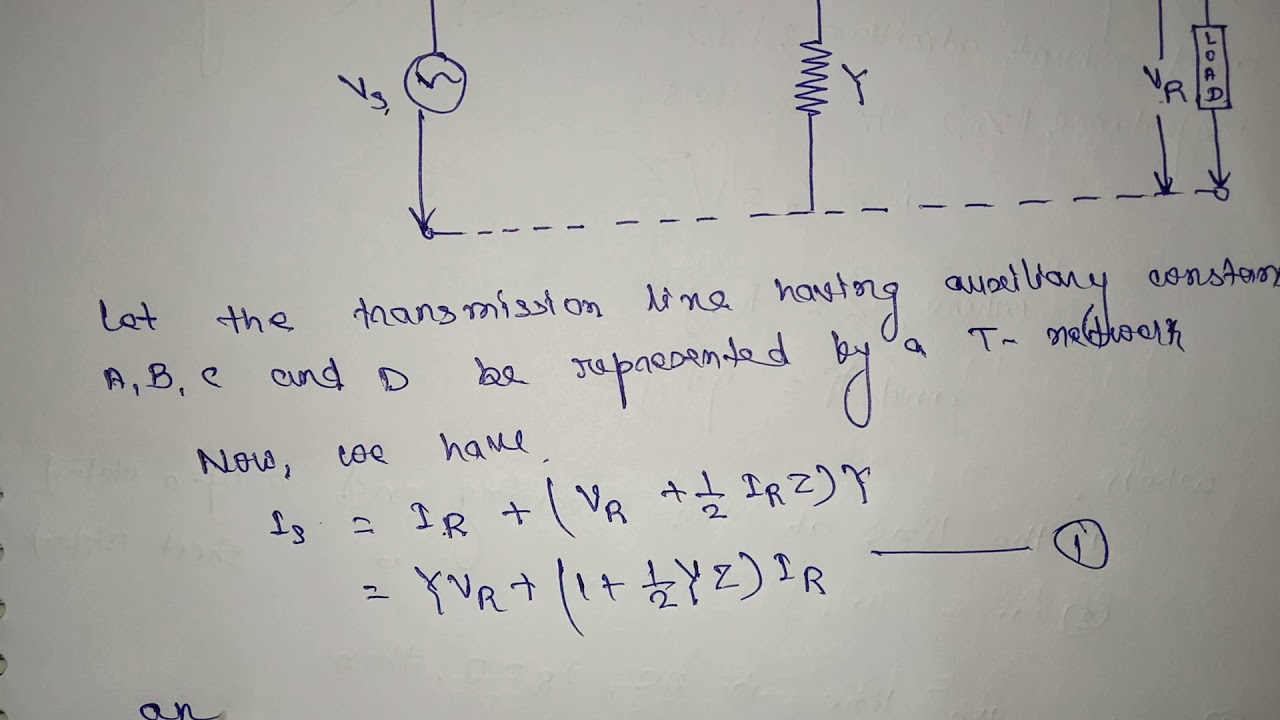 Vs
Y
VR
LOAD
Let the transmission line having auxiliary constan
A, B, C and D be represented by a T- network
Now, we have
Is = IR + (VR + 1/2 IR Z) Y
= YVR + (1 + 1/2 YZ) IR ——— ①
an